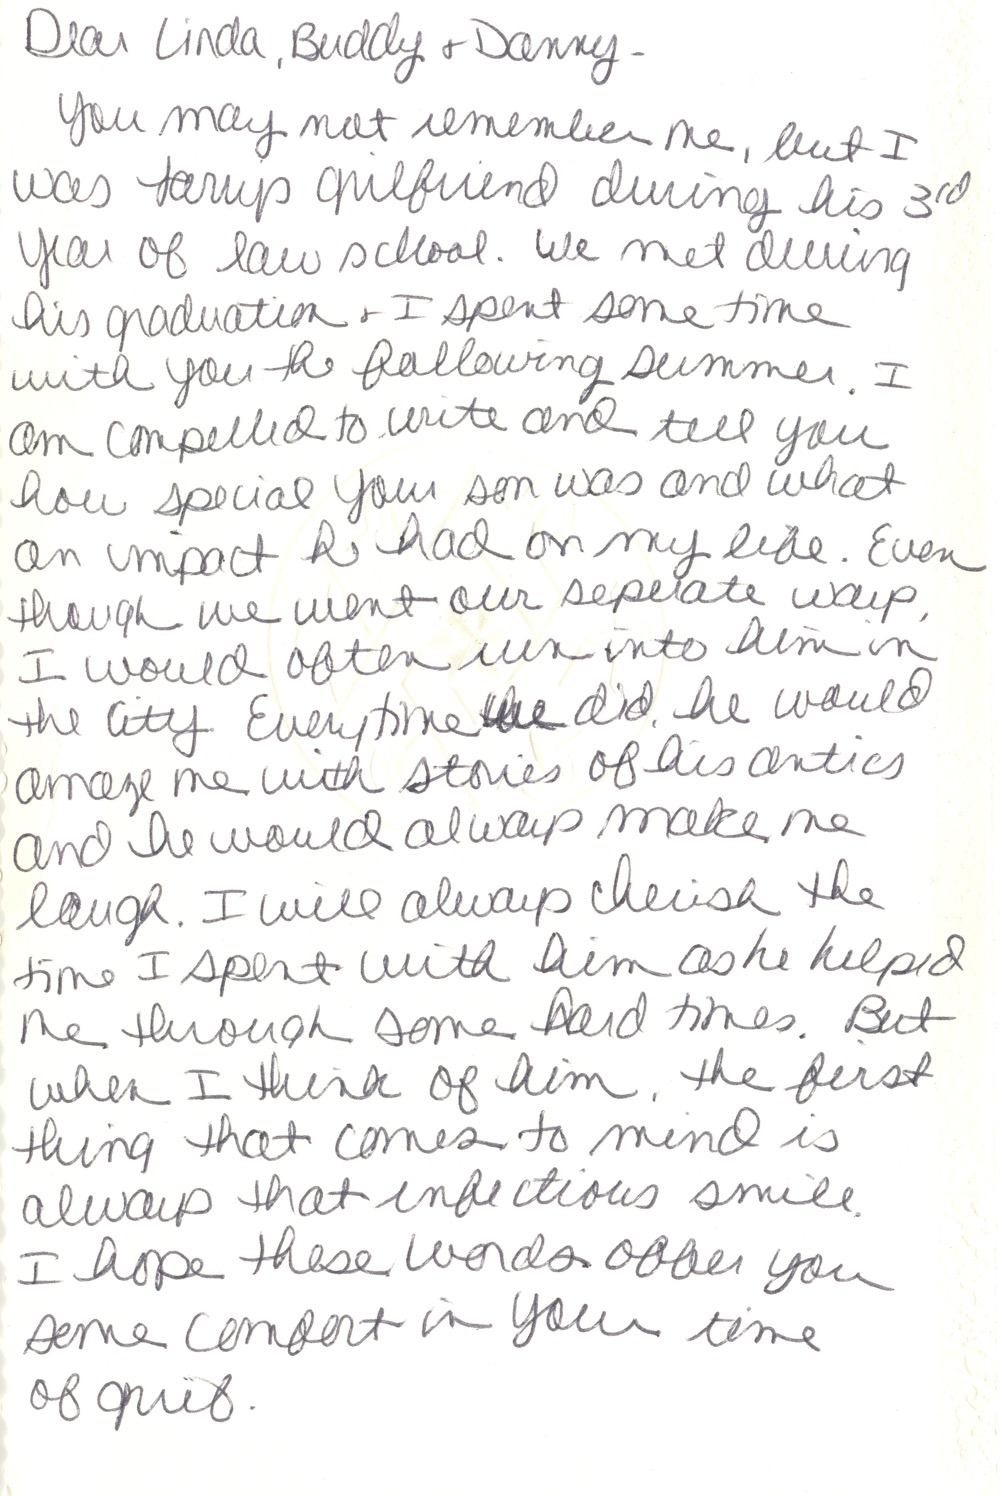 Dear Linda, Buddy + Danny -
You may not remember me, but I
was Larry's girlfriend during his 3rd
year of law school. We met during
his graduation + I spent some time
with you the following summer. I
am compelled to write and tell you
how special your son was and what
an impact he had on my life. Even
though we went our seperate ways,
I would often run into him in
the City. Everytime we did, he would
amaze me with stories of his antics
and he would always make me
laugh. I will always cherish the
time I spent with him as he helped
me through some hard times. But
when I think of him, the first
thing that comes to mind is
always that infectious smile.
I hope these words offer you
some comfort in your time
of grief.